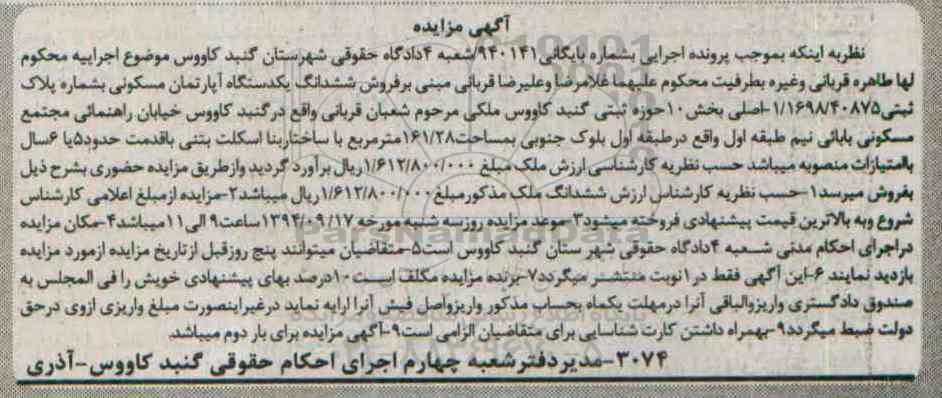 آگهی مزایده
نظربه اینکه بموجب پرونده اجرایی بشماره بایگانی۹۴۰۱۴۱/شعبه ۴دادگاه حقوقی شهرستان گنبد کاووس موضوع اجراییه محکوم
لها طاهره قربانی وغیره بطرفیت محکوم علیهما غلامرضا وعلیرضا قربانی مبنی برفروش ششدانگ یکدستگاه آپارتمان مسکونی بشماره پلاک
ثبتی۱/۱۶۹۸/۴۰۸۷۵-اصلی بخش ۱۰حوزه ثبتی گنبد کاووس ملکی مرحوم شعبان قربانی واقع درگنبد کاووس خیابان راهنمائی مجتمع
مسکونی بابائی نیم طبقه اول واقع درطبقه اول بلوک جنوبی بمساحت۱۶۱/۲۸مترمربع با ساختاربنا اسکلت بتنی باقدمت حدود۵یا ۶سال
باامتیازات منصوبه میباشد حسب نظریه کارشناسی ارزش ملک مبلغ ۱/۶۱۲/۸۰۰/۰۰۰ریال برآورد گردید وازطریق مزایده حضوری بشرح ذیل
بفروش میرسد۱-حسب نظریه کارشناس ارزش ششدانگ ملک مذکورمبلغ۱/۶۱۲/۸۰۰/۰۰۰ ریال میباشد۲-مزایده ازمبلغ اعلامی کارشناس
شروع وبه بالاترین قیمت پیشنهادی فروخته میشود۳-موعد مزایده روزسه شنبه مورخه ۱۳۹۴/۰۹/۱۷ساعت۹ الی۱۱میباشد۴-مکان مزایده
دراجرای احکام مدنی شعبه ۴دادگاه حقوقی شهرستان گنبد کاووس است۵-متقاضیان میتوانند پنج روزقبل ازتاریخ مزایده ازمورد مزایده
بازدید نمایند ۶-این آگهی فقط در۱نوبت منتشر میگردد۷-برنده مزایده مکلف است ۱۰درصد بهای پیشنهادی خویش را فی المجلس به
صندوق دادگستری واریزوالباقی آنرا درمهلت یکماه بحساب مذکور واریزواصل فیش آنرا ارایه نماید درغیراینصورت مبلغ واریزی ازوی درحق
دولت ضبط میگردد۹-بهمراه داشتن کارت شناسایی برای متقاضیان الزامی است۹-آگهی مزایده برای بار دوم میباشد.
۳۰۷۴-مدیردفترشعبه چهارم اجرای احکام حقوقی گنبد کاووس-آذری